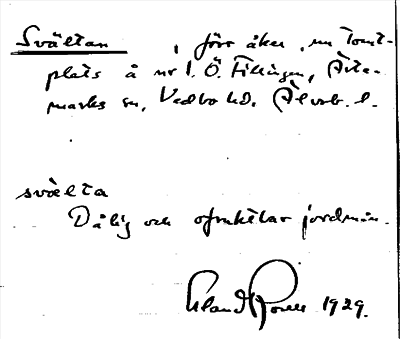 Svältan , förr åker, nu Tomt-
plats å nr 1. Ö. Fillingen, Ärte-
marks sn, Vedbo hd. Älvsb. l.
svälta
Dålig och ofruktbar jordmån.
Erland Rosell 1929.